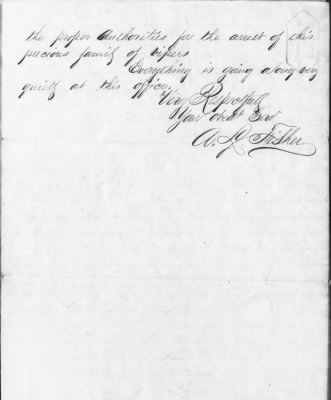 the proper Authorities for the arrest of this
precious family of vipers
Everything is going along very
quietly at this office,
Very Respectfull
Your obedt Servt
A. Fisher